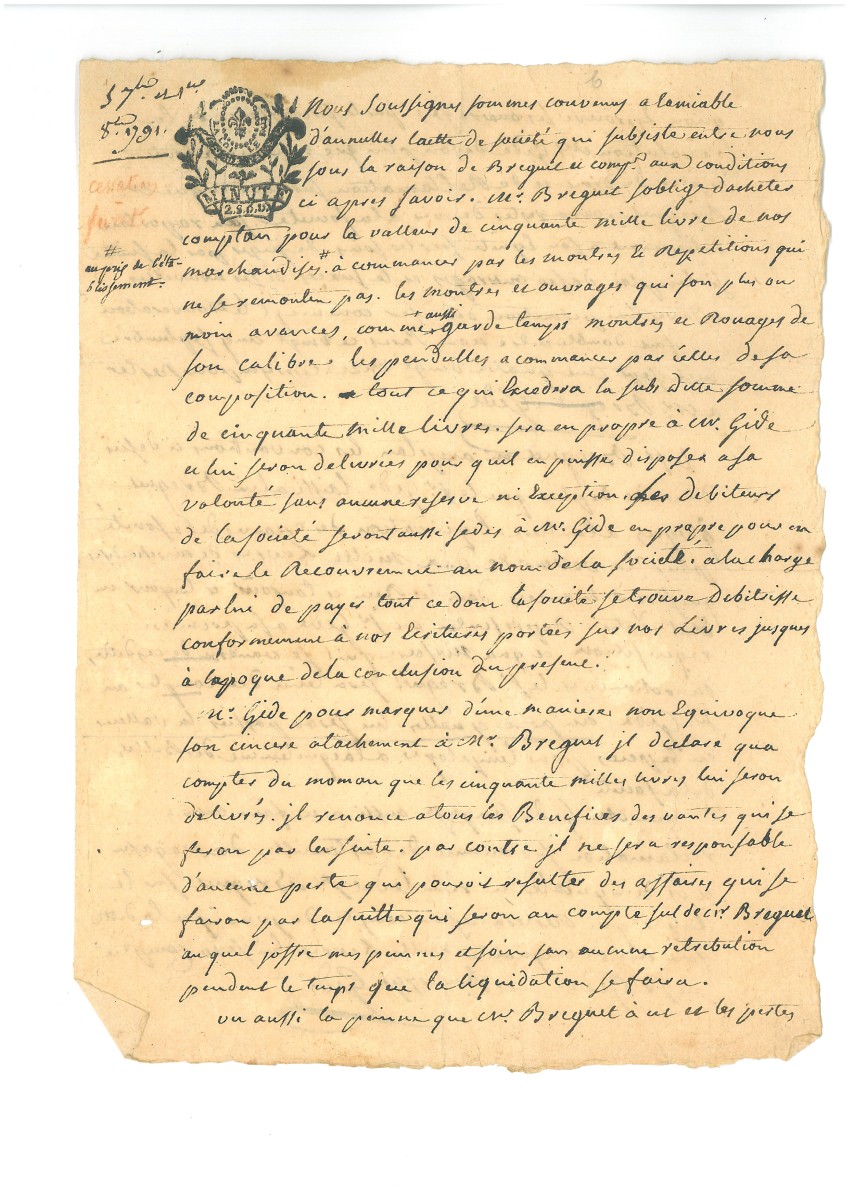 5 7bre et 1er
8bre 1791.
cessation
Nous Soussignes sommes convenus a lamiable
d'annulles laette de société qui subsiste entre nous
LA LOI LE ROI
sous la raison de Breguet et comp.e aux conditions
ci apres savoir. Mr. Breguet soblige dacheter
MINUTE
2.S.6.D.
comptan pour la valleur de cinquante mille livre de nos
#
au prix de l'éta-
blissement.
marchandises # à commancer par les montres & Repetitions qui
ne se remonten pas. les montres et ouvrages qui son plus ou
moin avances, comme + aussi garde temps montres et Rouages de
son calibre. les pendulles a commancer par celles de sa
composition. tout ce qui Excedera la subs ditte somme
de cinquante mille livres. sera en propre à Mr. Gide
et lui seron delivrées pour quil en puisse disposer a sa
volonté sans aucune reserve ni Exception. Les debiteurs
de la société seront aussi sedés à Mr. Gide en propre pour en
faire le Recouvrement au nom de la société. a la charge
par lui de payer tout ce dont la société se trouve Debitrisse
conformement à nos Ecritures portées sur nos Livres jusques
à lapoque de la conclusion du present.
Mr. Gide pour marques d'une maniere non Equivoque
son cincere atachement à Mr. Breguet jl declare qua
compter du moman que les cinquante milles livres lui seron
delivrés. jl renonce a tous les Benefices des vantes qui se
feron par la suite. par contre jl ne sera responsable
d'aucune perte qui pouroit resulter des affaires qui se
fairon par la suitte qui seron au compte sul de Mr. Breguet
au quel joffre mes peinnes et soin san aucune retribution
pendent le temps que la liquidation se faira.
vu aussi la peinne que Mr. Breguet à ut et les pertes